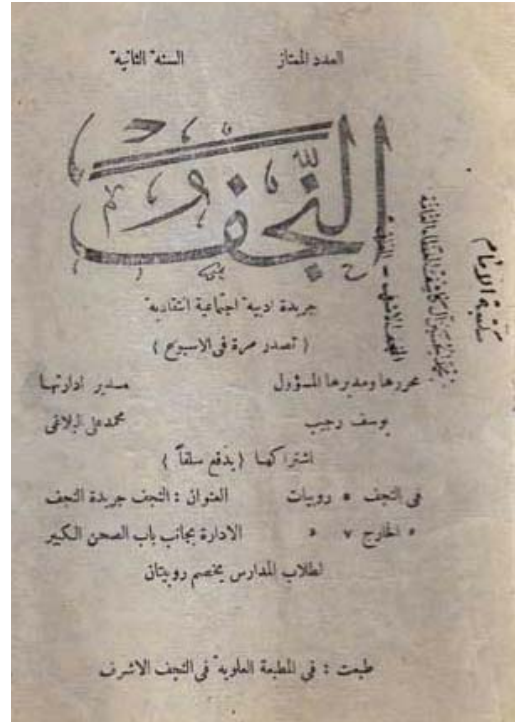 العدد الممتاز السنة الثانية
النَّجف
جريدة ادبية اجتماعية انتقادية
( تصدر مرة في الاسبوع )
محررها ومديرها المسؤول مدير ادارتها
يوسف رجيب محمد علي البلاغي
اشتراكها ( يدفع سلفاً )
في النجف ٥ روبيات العنوان : النجف جريدة النجف
« الخارج ٧ « الادارة بجانب باب الصحن الكبير
لطلاب المدارس يخصم روبيتان
طبعت : في المطبعة العلوية في النجف الاشرف
مكتبة الامام